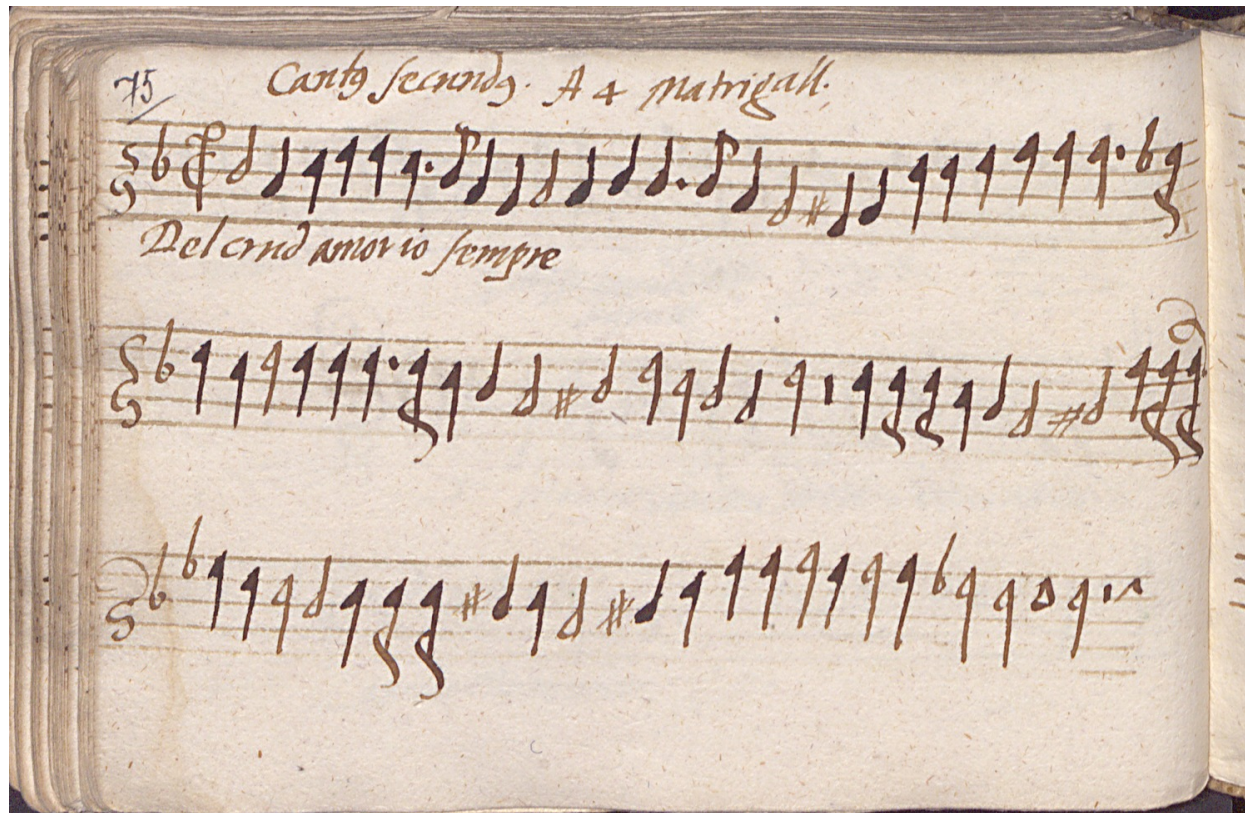 75
Cantꝯ secundꝯ. A 4 Matrigall.
Del crud amor io sempre